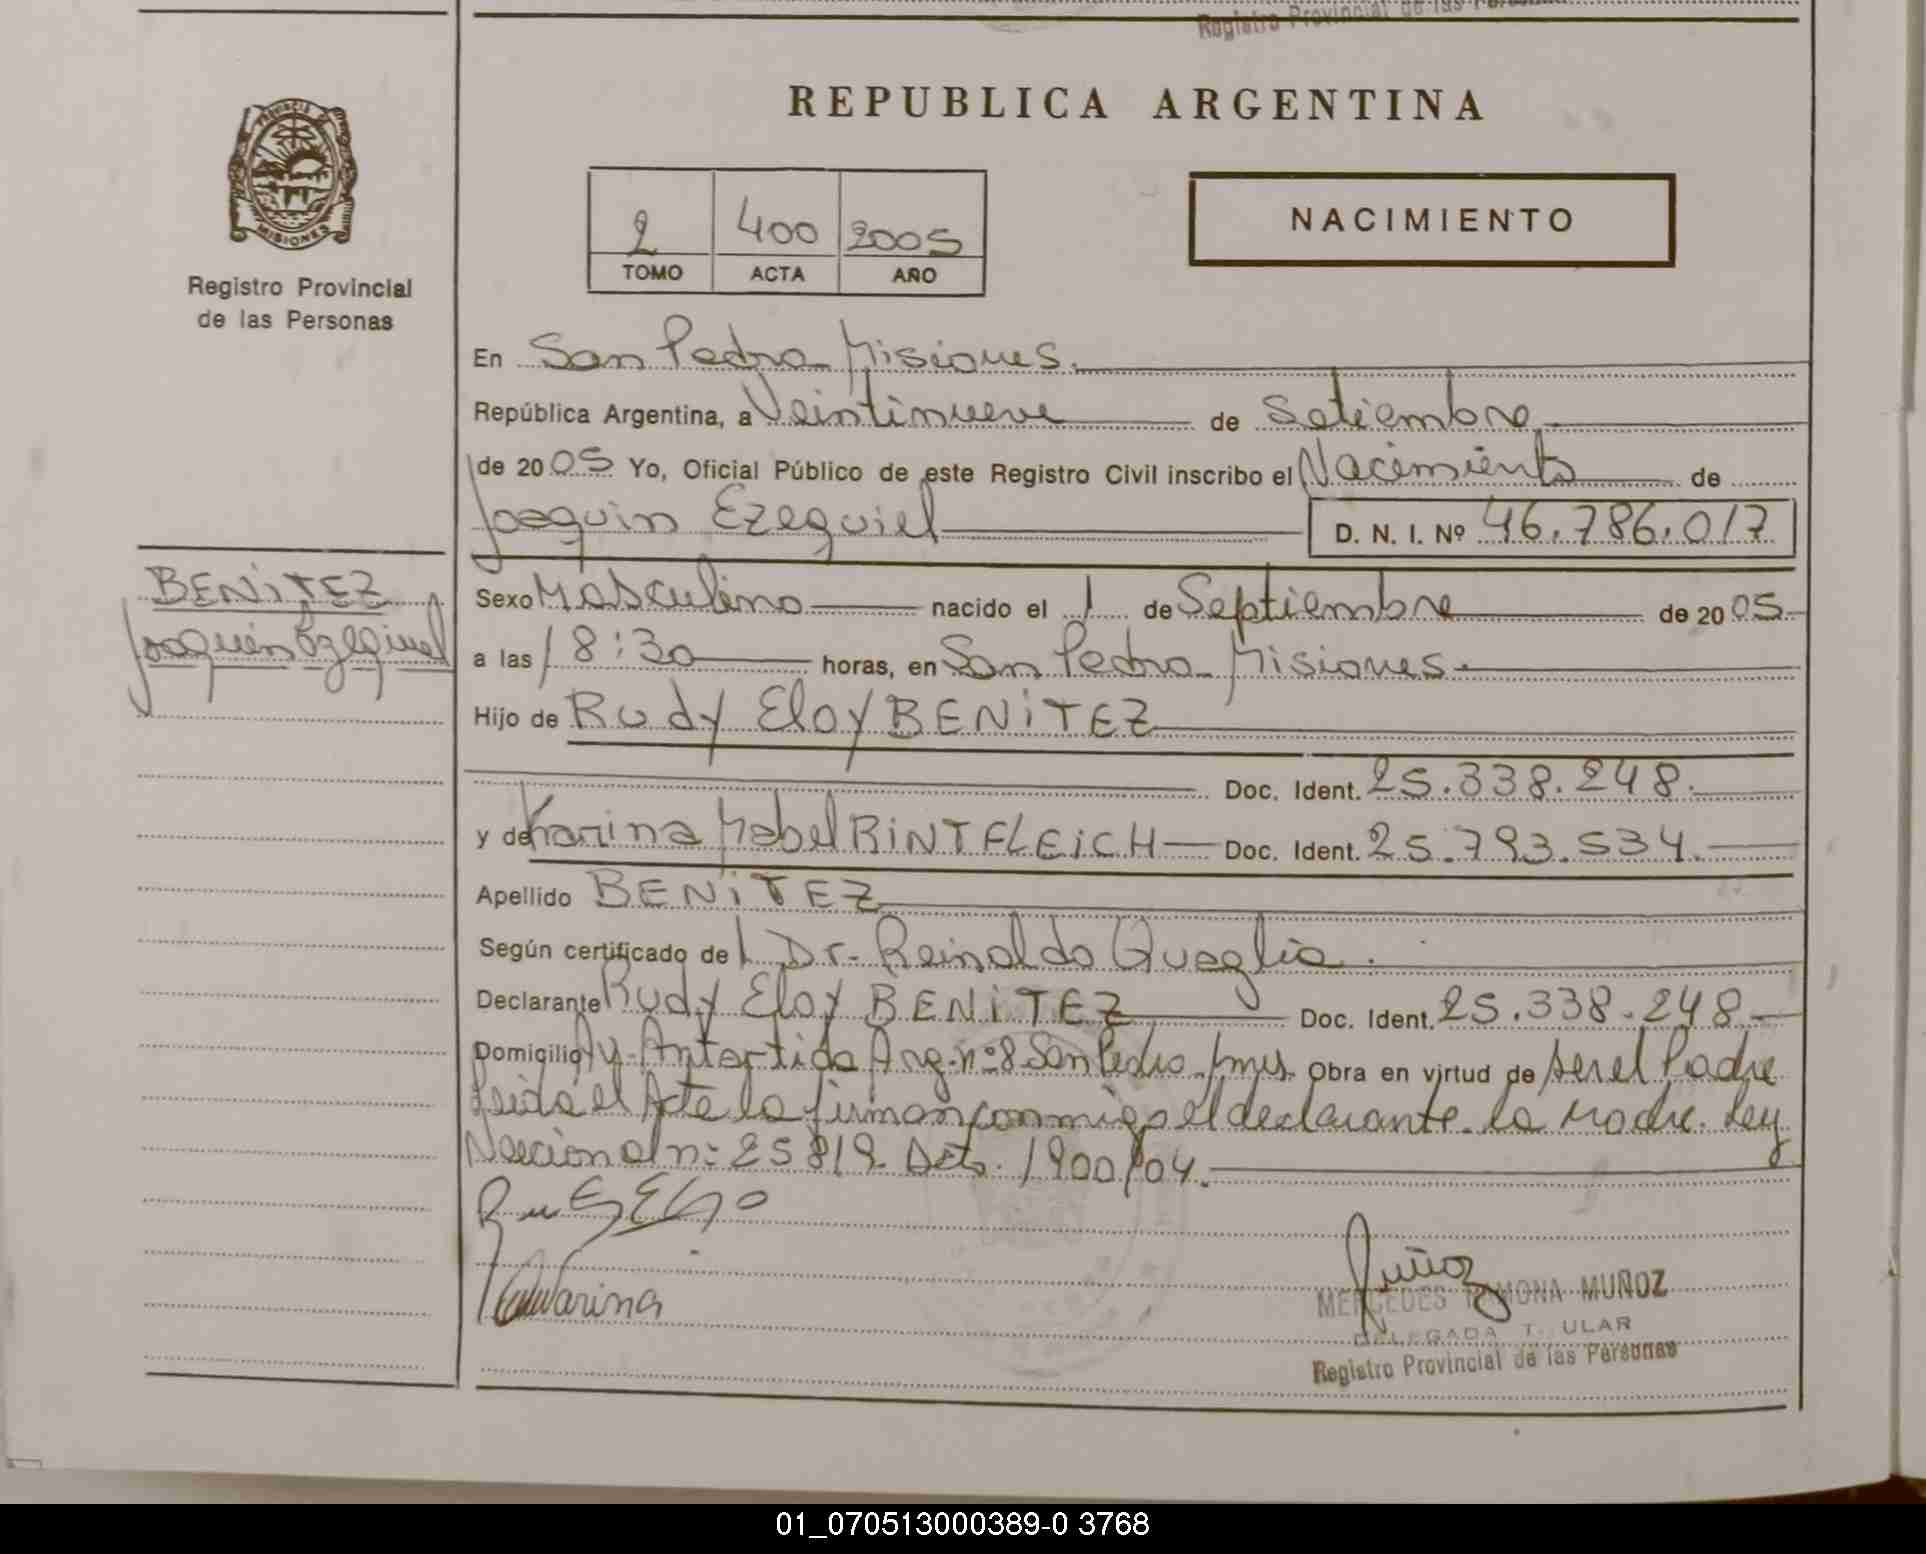 Registro Provincial de las Personas
REPUBLICA ARGENTINA
PROVINCIA DE
MISIONES
Registro Provincial
de las Personas
2 400 2005
TOMO ACTA AÑO
NACIMIENTO
En San Pedro Misiones.
República Argentina, a Veintinueve de Setiembre
de 2005 Yo, Oficial Público de este Registro Civil inscribo el Nacimiento de
Joaquin Ezequiel D. N. I. Nº 46.786.017
BENiTEZ
Joaquin Ezequiel
Sexo Masculino nacido el 1 de Septiembre de 2005
a las 18:30 horas, en San Pedro Misiones.
Hijo de Rudy Eloy BENiTEZ
Doc. Ident. 25.338.248.
y de Karina Mabel RiNTFLEiCH Doc. Ident. 25.793.534.
Apellido BENiTEZ
Según certificado del Dr. Reinaldo Quaglia.
Declarante Rudy Eloy BENiTEZ Doc. Ident. 25.338.248
Domicilio Av. Antartida Arg. nº 8 San Pedro Mnes. Obra en virtud de ser el Padre
Leida el Acta la firman conmigo el declarante. la Madre. Ley
Nacional nº 25819 Dcto. 1900/04.
Karina
Muñoz
MERCEDES RAMONA MUÑOZ
DELEGADA T. ULAR
Registro Provincial de las Personas
01_070513000389-0 3768